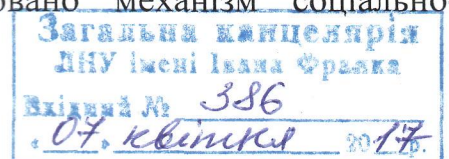 овано механізм соціально
Загальна канцелярія
ЛНУ імені Івана Франка
Вхідний № 386
"07" квітня 2017 р.